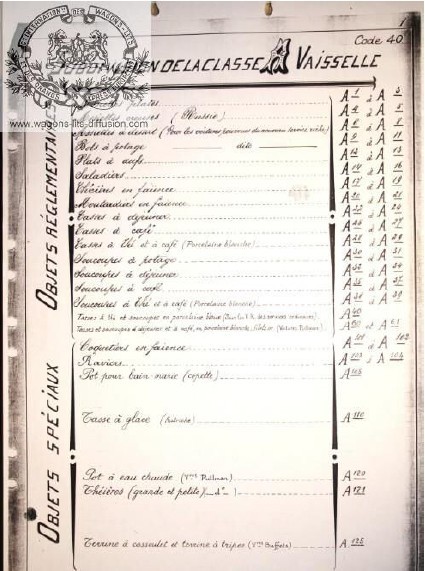 1
Code 40
SUBDIVISION DE LA CLASSE A VAISSELLE
CONSERVATION DES WAGONS-LITS
www.wagons-lits-diffusion.com
OBJETS RÉGLEMENTAIRES
Assiettes plates A 1 à A 3
Assiettes creuses (Russie) A à A
Assiettes à dessert (Pour les voitures pourvues du nouveau service rôtie) A à A
Bols à potage dito A à A
Plats à œufs A 12 à A 13
Saladiers A 14 à A 16
Théières en faïence A 17 à A 19
Moutardiers en faïence A 20 à A 21
Tasses à déjeuner A 22 à A
Tasses à café A à A 27
Tasses à thé et à café (Porcelaine blanche) A 28 à A
Soucoupes à potage A 30 à A 31
Soucoupes à déjeuner A 32 à A 34
Soucoupes à café A à A 37
Soucoupes à thé et à café (Porcelaine blanche) A à A 39
Tasses à thé et soucoupes en porcelaine bleue A 40
Tasses et soucoupes à déjeuner et à café, en porcelaine blanche, filetées (Voitures Pullman) A 60 et A 61
OBJETS SPÉCIAUX
Coquetiers en faïence A 101 à A 102
Raviers A 103 à A 104
Pot pour bain marie (copette) A 105
Tasse à glace (Autriche) A 110
Pot à eau chaude (Vres Pullman) A 120
Théières (grande et petite) do A 121
Terrine à cassoulet et terrine à tripes (Vres Buffets) A 125